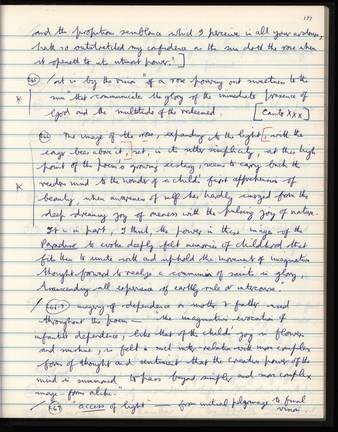 177
and the propitious semblance which I perceive in all your ardours,
hath so outstretched my confidence as the sun doth the rose when
it openeth to its utmost power.']
"at is by the vision "of a rose pouring out sweetness to the
sun" that communicates the glory of the immediate presence of
God and the multitude of the redeemed. [Canto XXX]
The image of the rose, expanding to the light, with the
eager bees above it, that, in its utter simplicity, at this high
point of the poem's growing ecstasy, seems to carry back the
reader's mind to the wonder of a child's first apprehension of
beauty, when awareness of self has hardly emerged from the
deep dreaming joy of oneness with the pulsing joy of nature.
It is in part, I think, the power in these images of the
Paradiso to evoke deeply felt memories of childhood that
fits them to unite with and uphold the movement of imaginative
thought forward to realize a communion of saints in glory,
transcending all experience of earthly rule or intercourse"
imagery of dependence on mother & father used
throughout the poem — "the imaginative evocation of
infantile dependence, like that of the child's joy in flowers
and sunshine, is felt to melt into relation with more complex
forms of thought and sentiment that the creative power of the
mind is summoned to pass beyond simple and more complex
image-form alike.
"access of light" — from initial pilgrimage to final
vision